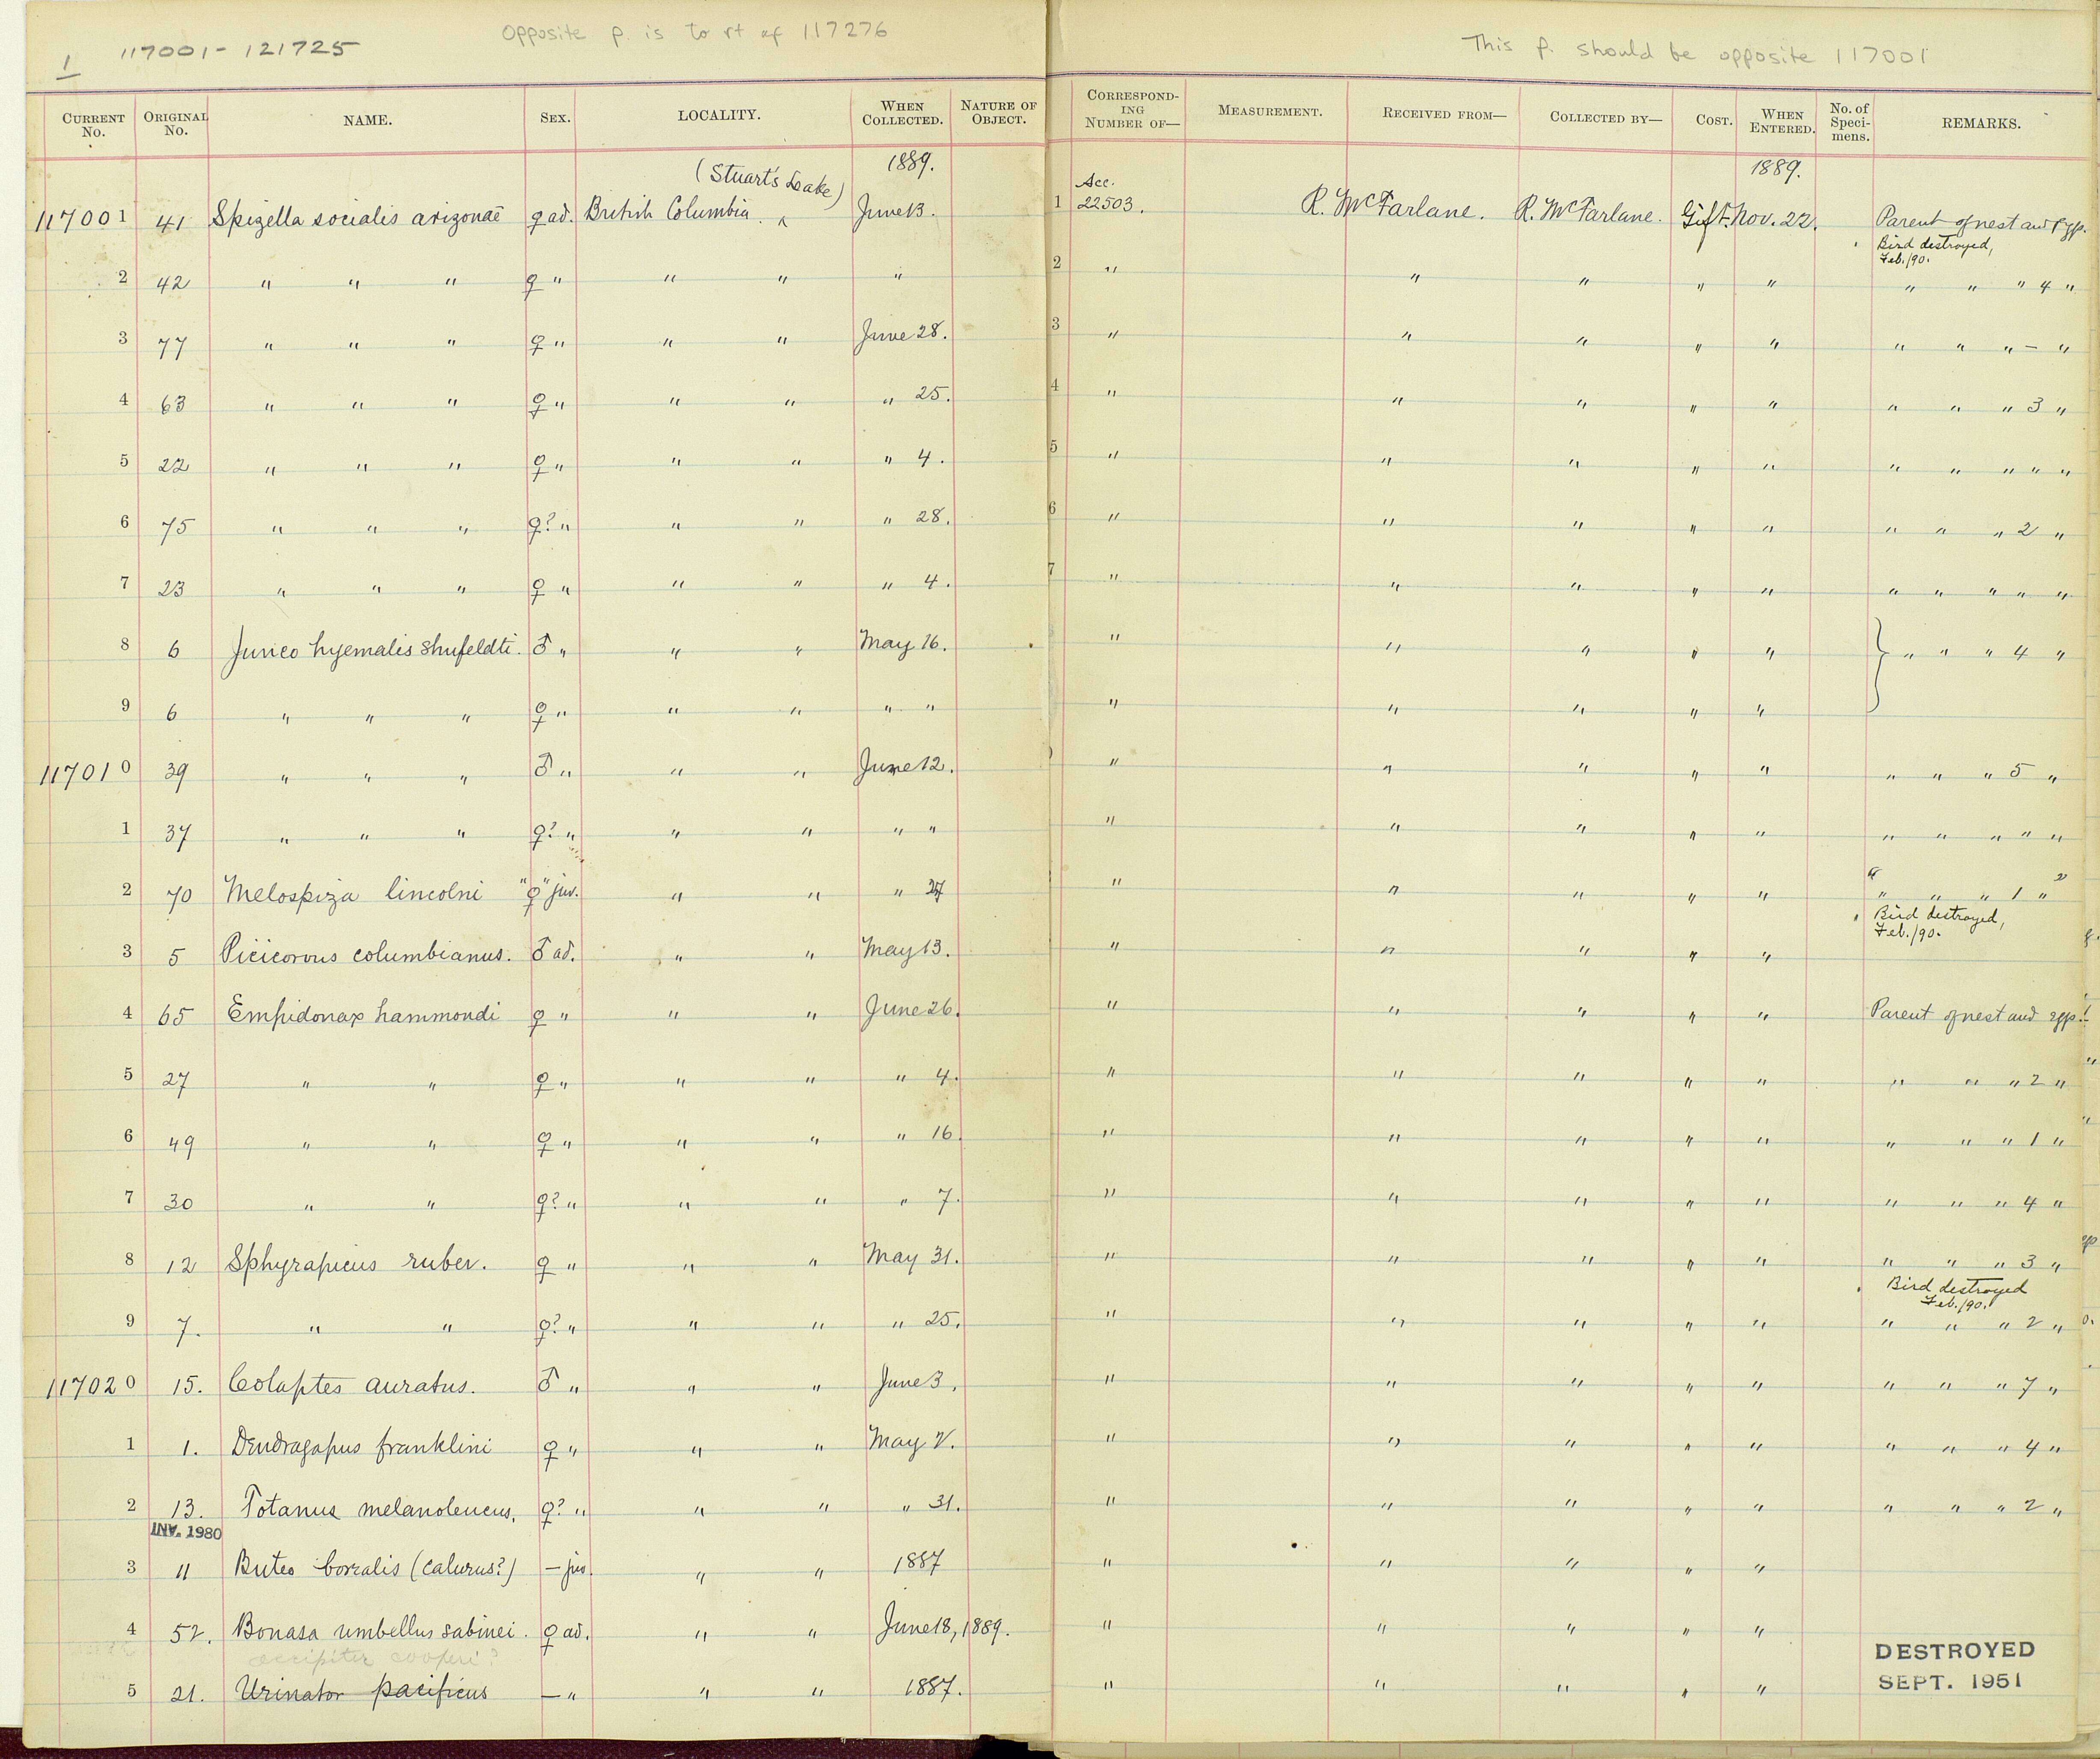 1 117001 - 121725 Opposite p. is to rt of 117276
This p. should be opposite 117001
CURRENT No. ORIGINAL No. NAME. SEX. LOCALITY. WHEN COLLECTED. NATURE OF OBJECT. CORRESPONDING NUMBER OF— MEASUREMENT. RECEIVED FROM— COLLECTED BY— COST. WHEN ENTERED. No. of Specimens. REMARKS.
(Stuart's Lake) 1889. Acc. 1889.
117001 41 Spizella socialis arizonae ♀ ad. British Columbia. ^ June 13. 1 22503. R. McFarlane. R. McFarlane. Gift. Nov. 22. Parent of nest and
Bird destroyed,
Feb./90.
2 42 " " " ♀ " " " " 2 " " " " " " " " 4 "
3 77 " " " ♀ " " " June 28. 3 " " " " " " " " – "
4 63 " " " ♀ " " " " 25. 4 " " " " " " " " 3 "
5 22 " " " ♀ " " " " 4. 5 " " " " " " " " " "
6 75 " " " ♀? " " " " 28. 6 " " " " " " " " 2 "
7 23 " " " ♀ " " " " 4. 7 " " " " " " " " " "
8 6 Junco hyemalis shufeldti. ♂ " " " May 16. " " " " " } " " " 4 "
9 6 " " " ♀ " " " " " " " " " "
117010 39 " " " ♂ " " " June 12. " " " " " " " " 5 "
1 37 " " " ♀? " " " " " " " " " " " " " " "
2 70 Melospiza lincolni "♀" juv. " " " 27 " " " " " " " " 1 "
Bird destroyed,
Feb./90.
3 5 Picicorvus columbianus. ♂ ad. " " May 13. " " " " "
4 65 Empidonax hammondi ♀ " " " June 26. " " " " " Parent of nest and
5 27 " " ♀ " " " " 4. " " " " " " " " 2 "
6 49 " " ♀ " " " " 16. " " " " " " " " 1 "
7 30 " " ♀? " " " " 7. " " " " " " " " 4 "
8 12 Sphyrapicus ruber. ♀ " " " May 31. " " " " " " " " 3 "
Bird destroyed
Feb./90.
9 7. " " ♀? " " " " 25. " " " " " " " " 2 "
117020 15. Colaptes auratus. ♂ " " " June 3. " " " " " " " " 7 "
1 1. Dendragapus franklini ♀ " " " May 2. " " " " " " " " 4 "
2 13. Totanus melanoleucus. ♀? " " " " 31. " " " " " " " " 2 "
INV. 1980
3 11 Buteo borealis (calurus?) – juv. " " 1887 " " " " "
4 52. Bonasa umbellus sabinei. ♀ ad. " " June 18, 1889. " " " " "
accipiter cooperi?
DESTROYED
5 21. Urinator pacificus – " " " 1887. " " " " "
SEPT. 1951